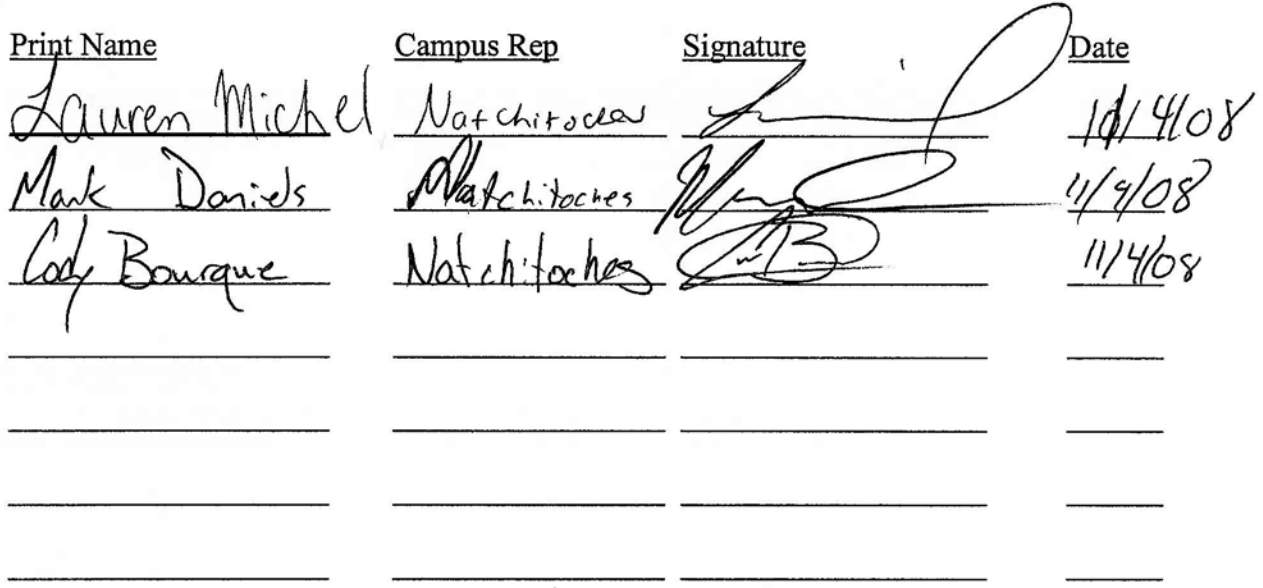 Print Name Campus Rep Signature Date
Lauren Michel Natchitoches 11/4/08
Mark Daniels Natchitoches 11/4/08
Cody Bourque Natchitoches 11/4/08